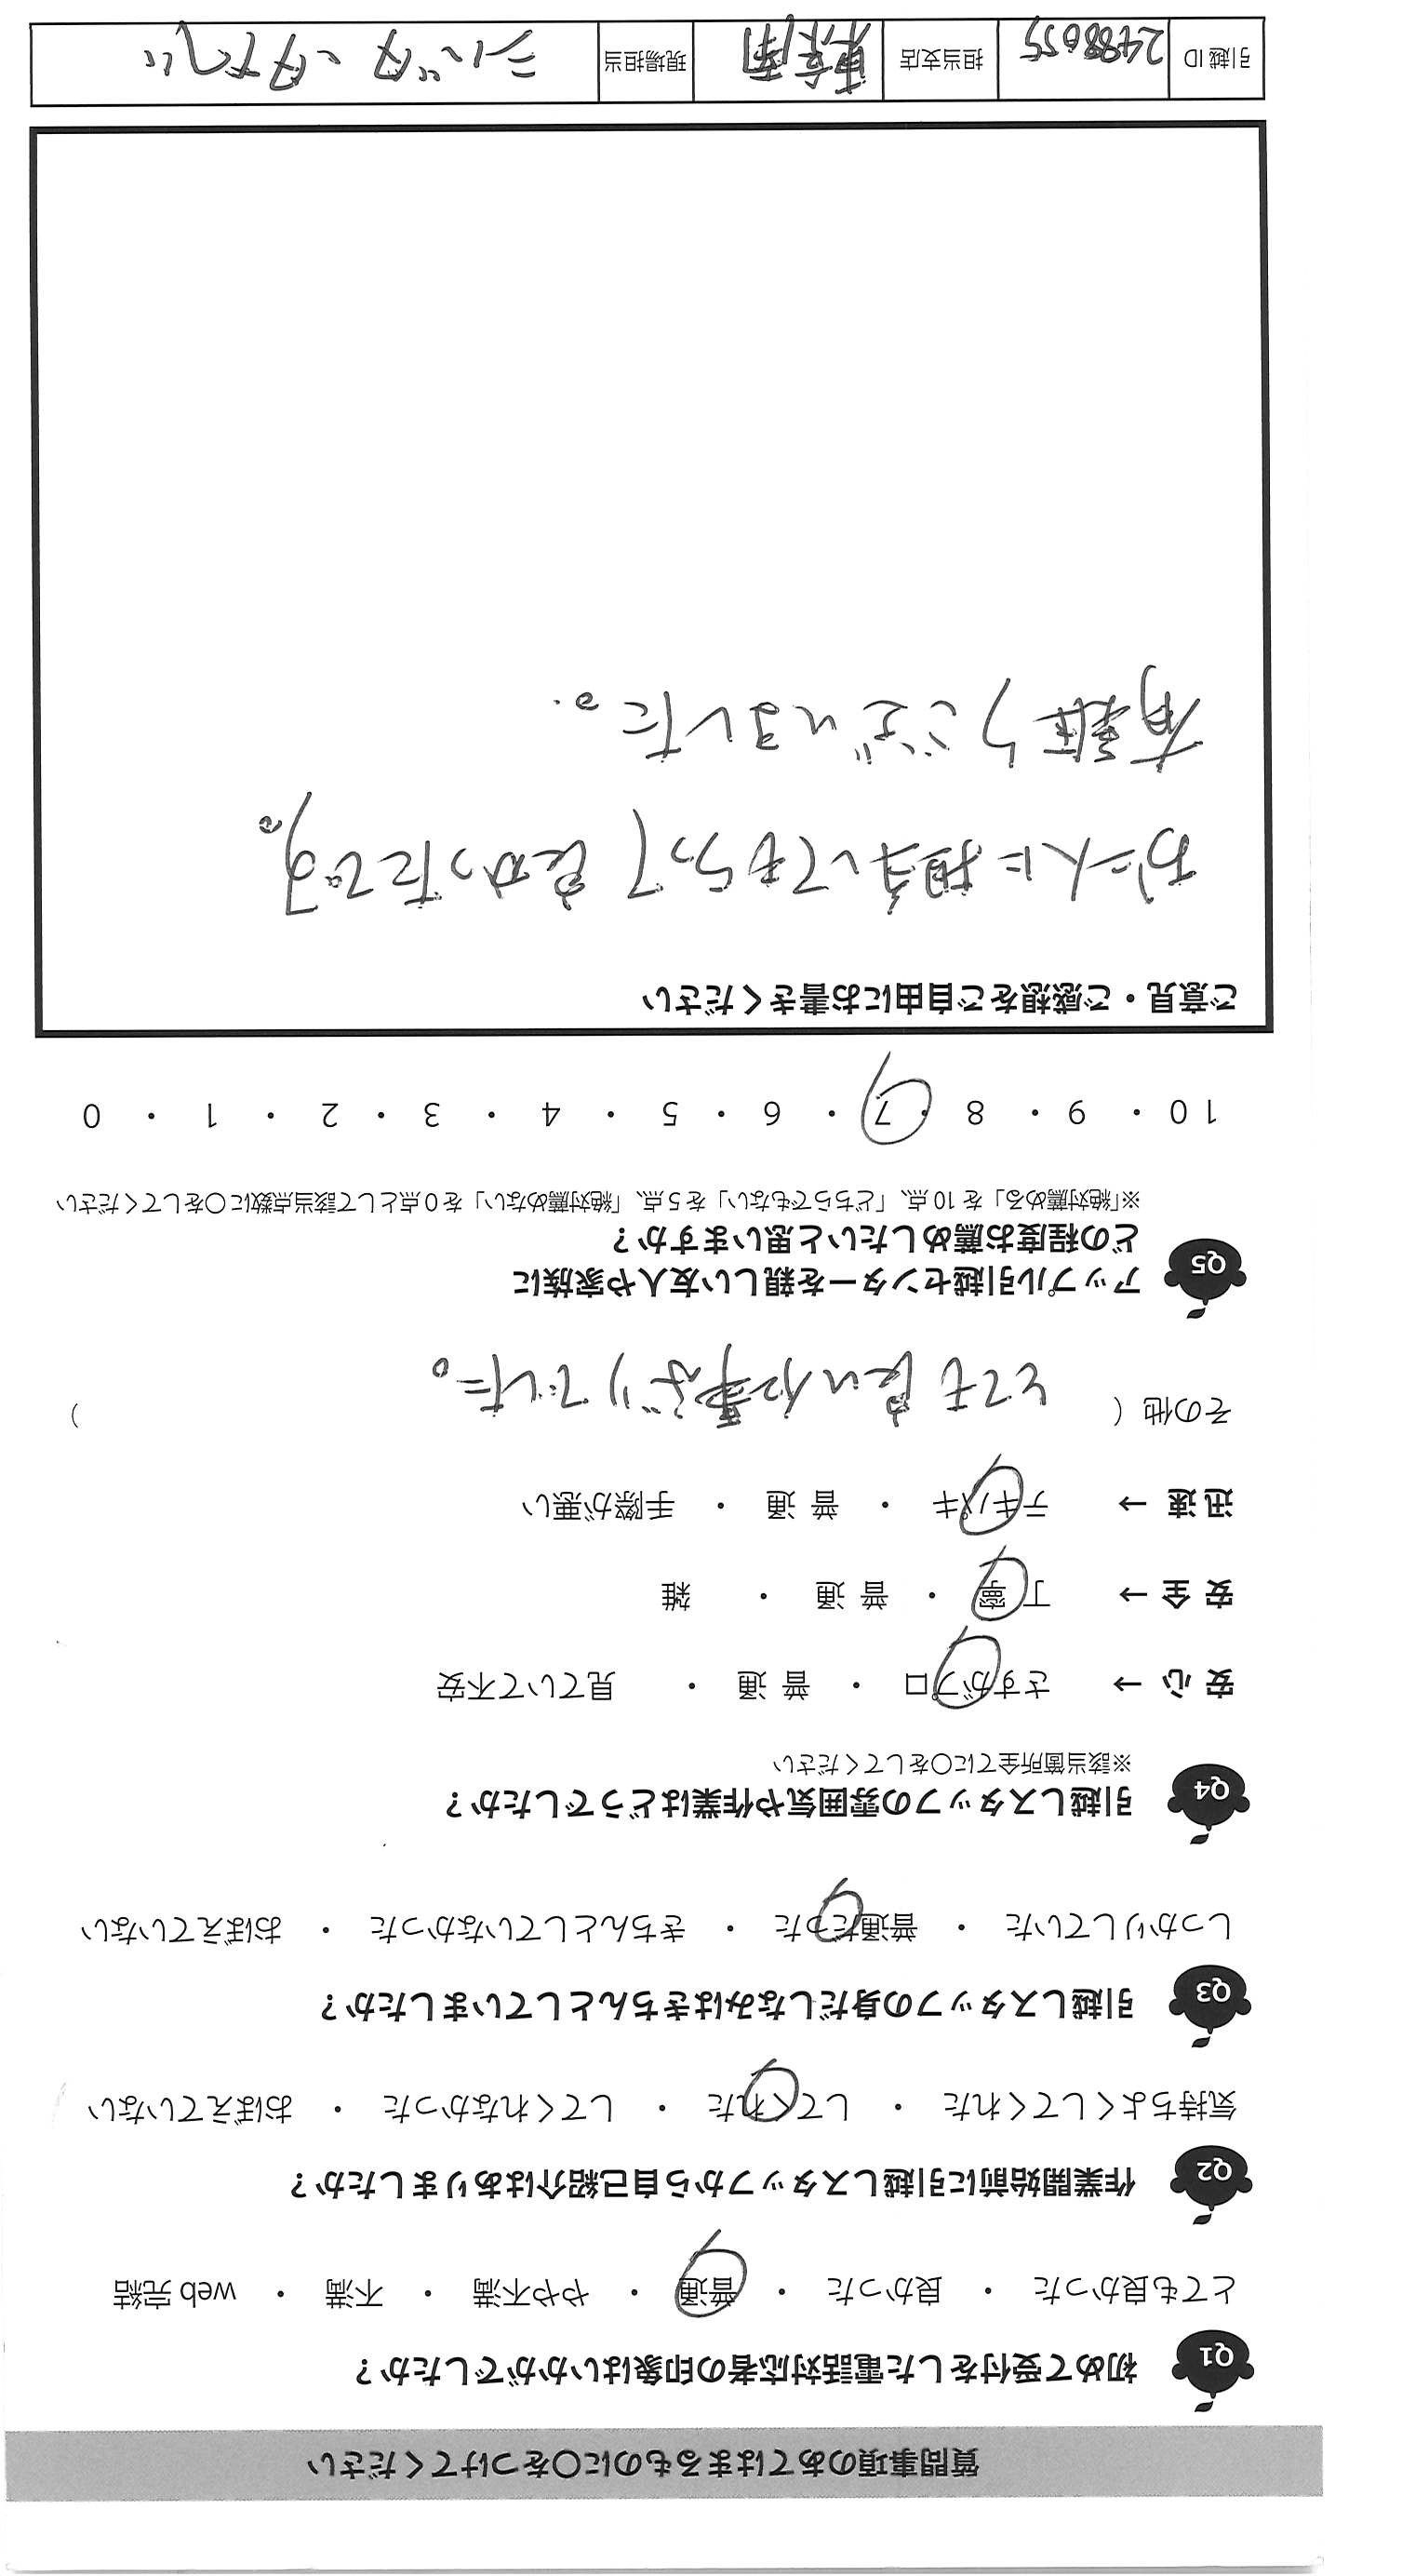 質問事項のあてはまるものに〇をつけてください
Q1 初めて受付をした電話対応者の印象はいかがでしたか？
とても良かった ・ 良かった ・ 普通 ・ やや不満 ・ 不満 ・ web 完結
Q2 作業開始前に引越しスタッフから自己紹介はありましたか？
気持ちよくしてくれた ・ してくれた ・ してくれなかった ・ おぼえていない
Q3 引越しスタッフの身だしなみはきちんとしていましたか？
しっかりしていた ・ 普通だった ・ きちんとしていなかった ・ おぼえていない
Q4 引越しスタッフの雰囲気や作業はどうでしたか？
※該当箇所全てに〇をしてください
安 心 → さすがプロ ・ 普 通 ・ 見ていて不安
安 全 → 丁 寧 ・ 普 通 ・ 雑
迅 速 → テキパキ ・ 普 通 ・ 手際が悪い
その他（ とても良い仕事ぶりでした。 ）
Q5 アップル引越センターを親しい友人や家族に
どの程度お薦めしたいと思いますか？
※「絶対薦める」を 10 点、「どちらでもない」を 5 点、「絶対薦めない」を 0 点として該当点数に〇をしてください
10 ・ 9 ・ 8 ・ 7 ・ 6 ・ 5 ・ 4 ・ 3 ・ 2 ・ 1 ・ 0
ご意見・ご感想をご自由にお書きください
お二人に担当してもらって良かったです。
有難うございました。
引越 ID 2488055 担当支店 東京南 現場担当